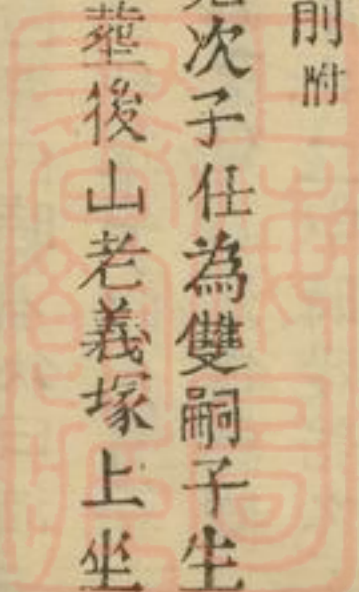 則附
次子仕為雙嗣子生
塟後山老義塚上坐